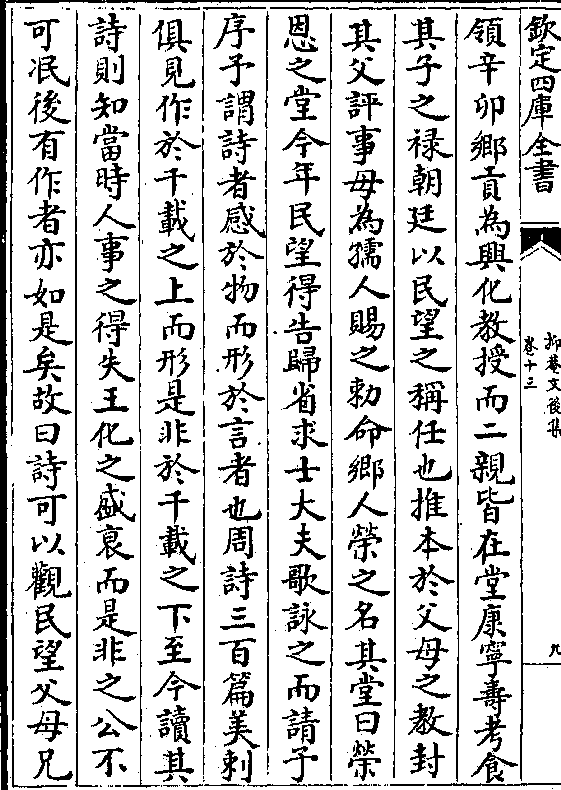 欽定四庫全書
抑菴文後集
卷十三
九
領辛卯鄉貢為興化教授而二親皆在堂康寧壽考食
其子之禄朝廷以民望之稱任也推本於父母之教封
其父評事母為孺人賜之勅命鄉人榮之名其堂曰榮
恩之堂今年民望得告歸省求士大夫歌詠之而請予
序予謂詩者感於物而形於言者也周詩三百篇美刺
俱見作於千載之上而形是非於千載之下至今讀其
詩則知當時人事之得失王化之盛衰而是非之公不
可冺後有作者亦如是矣故曰詩可以觀民望父母兄